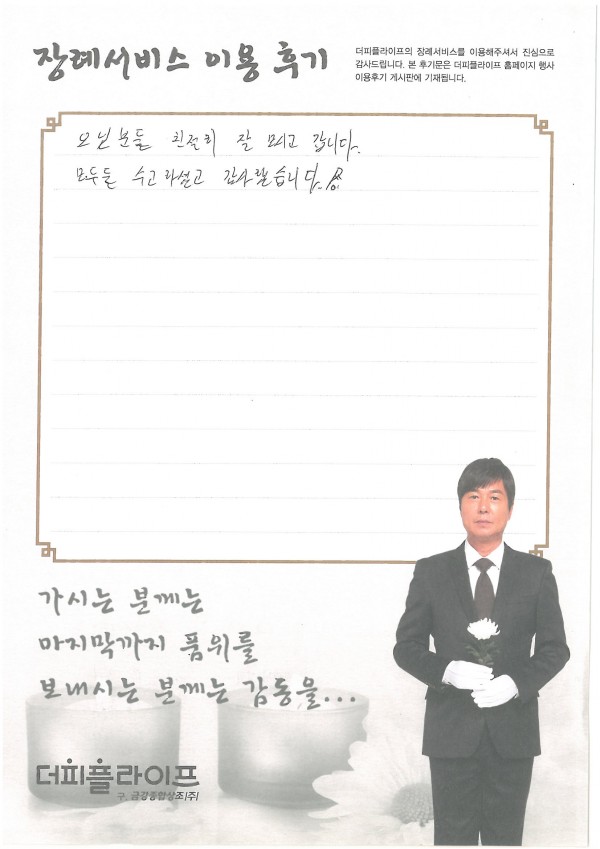 장례서비스 이용 후기
더피플라이프의 장례서비스를 이용해주셔서 진심으로
감사드립니다. 본 후기문은 더피플라이프 홈페이지 행사
이용후기 게시판에 기재됩니다.
오신분들 친절히 잘 모시고 갑니다.
모두들 수고하셨고 감사했습니다.
가시는 분께는
마지막까지 품위를
보내시는 분께는 감동을...
더피플라이프
구. 금강종합상조(주)